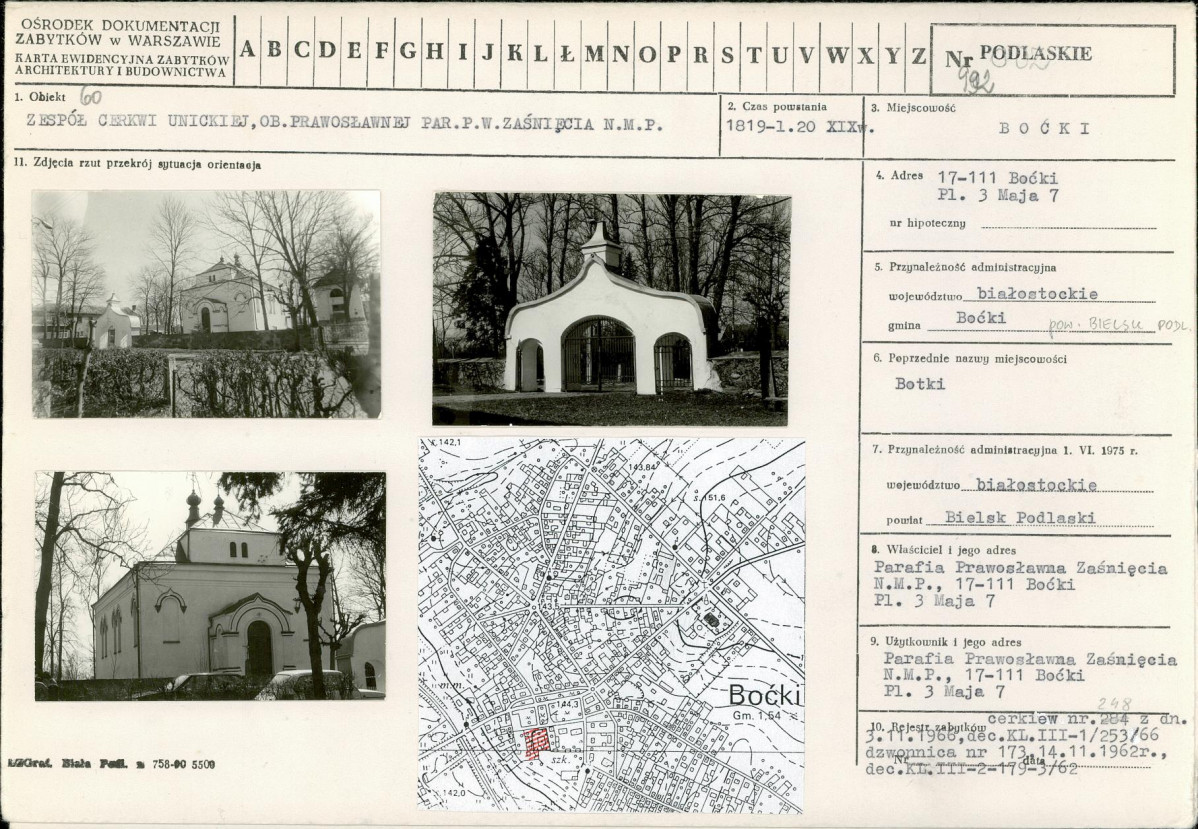 OŚRODEK DOKUMENTACJI
ZABYTKÓW w WARSZAWIE
KARTA EWIDENCYJNA ZABYTKÓW
ARCHITEKTURY I BUDOWNICTWA
A B C D E F G H I J K L Ł M N O P R S T U V W X Y Z
Nr PODLASKIE
992
1. Obiekt 60
ZESPÓŁ CERKWI UNICKIEJ,OB.PRAWOSŁAWNEJ PAR.P.W.ZAŚNIĘCIA N.M.P.
2. Czas powstania
1819-1.20 XIXw.
3. Miejscowość
BOĆKI
11. Zdjęcia rzut przekrój sytuacja orientacja
4. Adres 17-111 Boćki
Pl. 3 Maja 7
nr hipoteczny
5. Przynależność administracyjna
województwo białostockie
gmina Boćki pow. BIELSK PODL.
6. Poprzednie nazwy miejscowości
Botki
7. Przynależność administracyjna 1. VI. 1975 r.
województwo białostockie
powiat Bielsk Podlaski
8. Właściciel i jego adres
Parafia Prawosławna Zaśnięcia
N.M.P., 17-111 Boćki
Pl. 3 Maja 7
9. Użytkownik i jego adres
Parafia Prawosławna Zaśnięcia
N.M.P., 17-111 Boćki
Pl. 3 Maja 7
248
10. Rejestr zabytków cerkiew nr. 284 z dn.
3.11.1966,dec.KL.III-1/253/66
dzwonnica nr 173,14.11.1962r.,
Nr data
dec.KL.III-2-179-3/62
142,1
143,84
151,6
43,5
144,3
m.m.
Boćki
Gm. 1,64
szk.
142,0
ŁZGraf. Biała Podl. z 758-90 5500